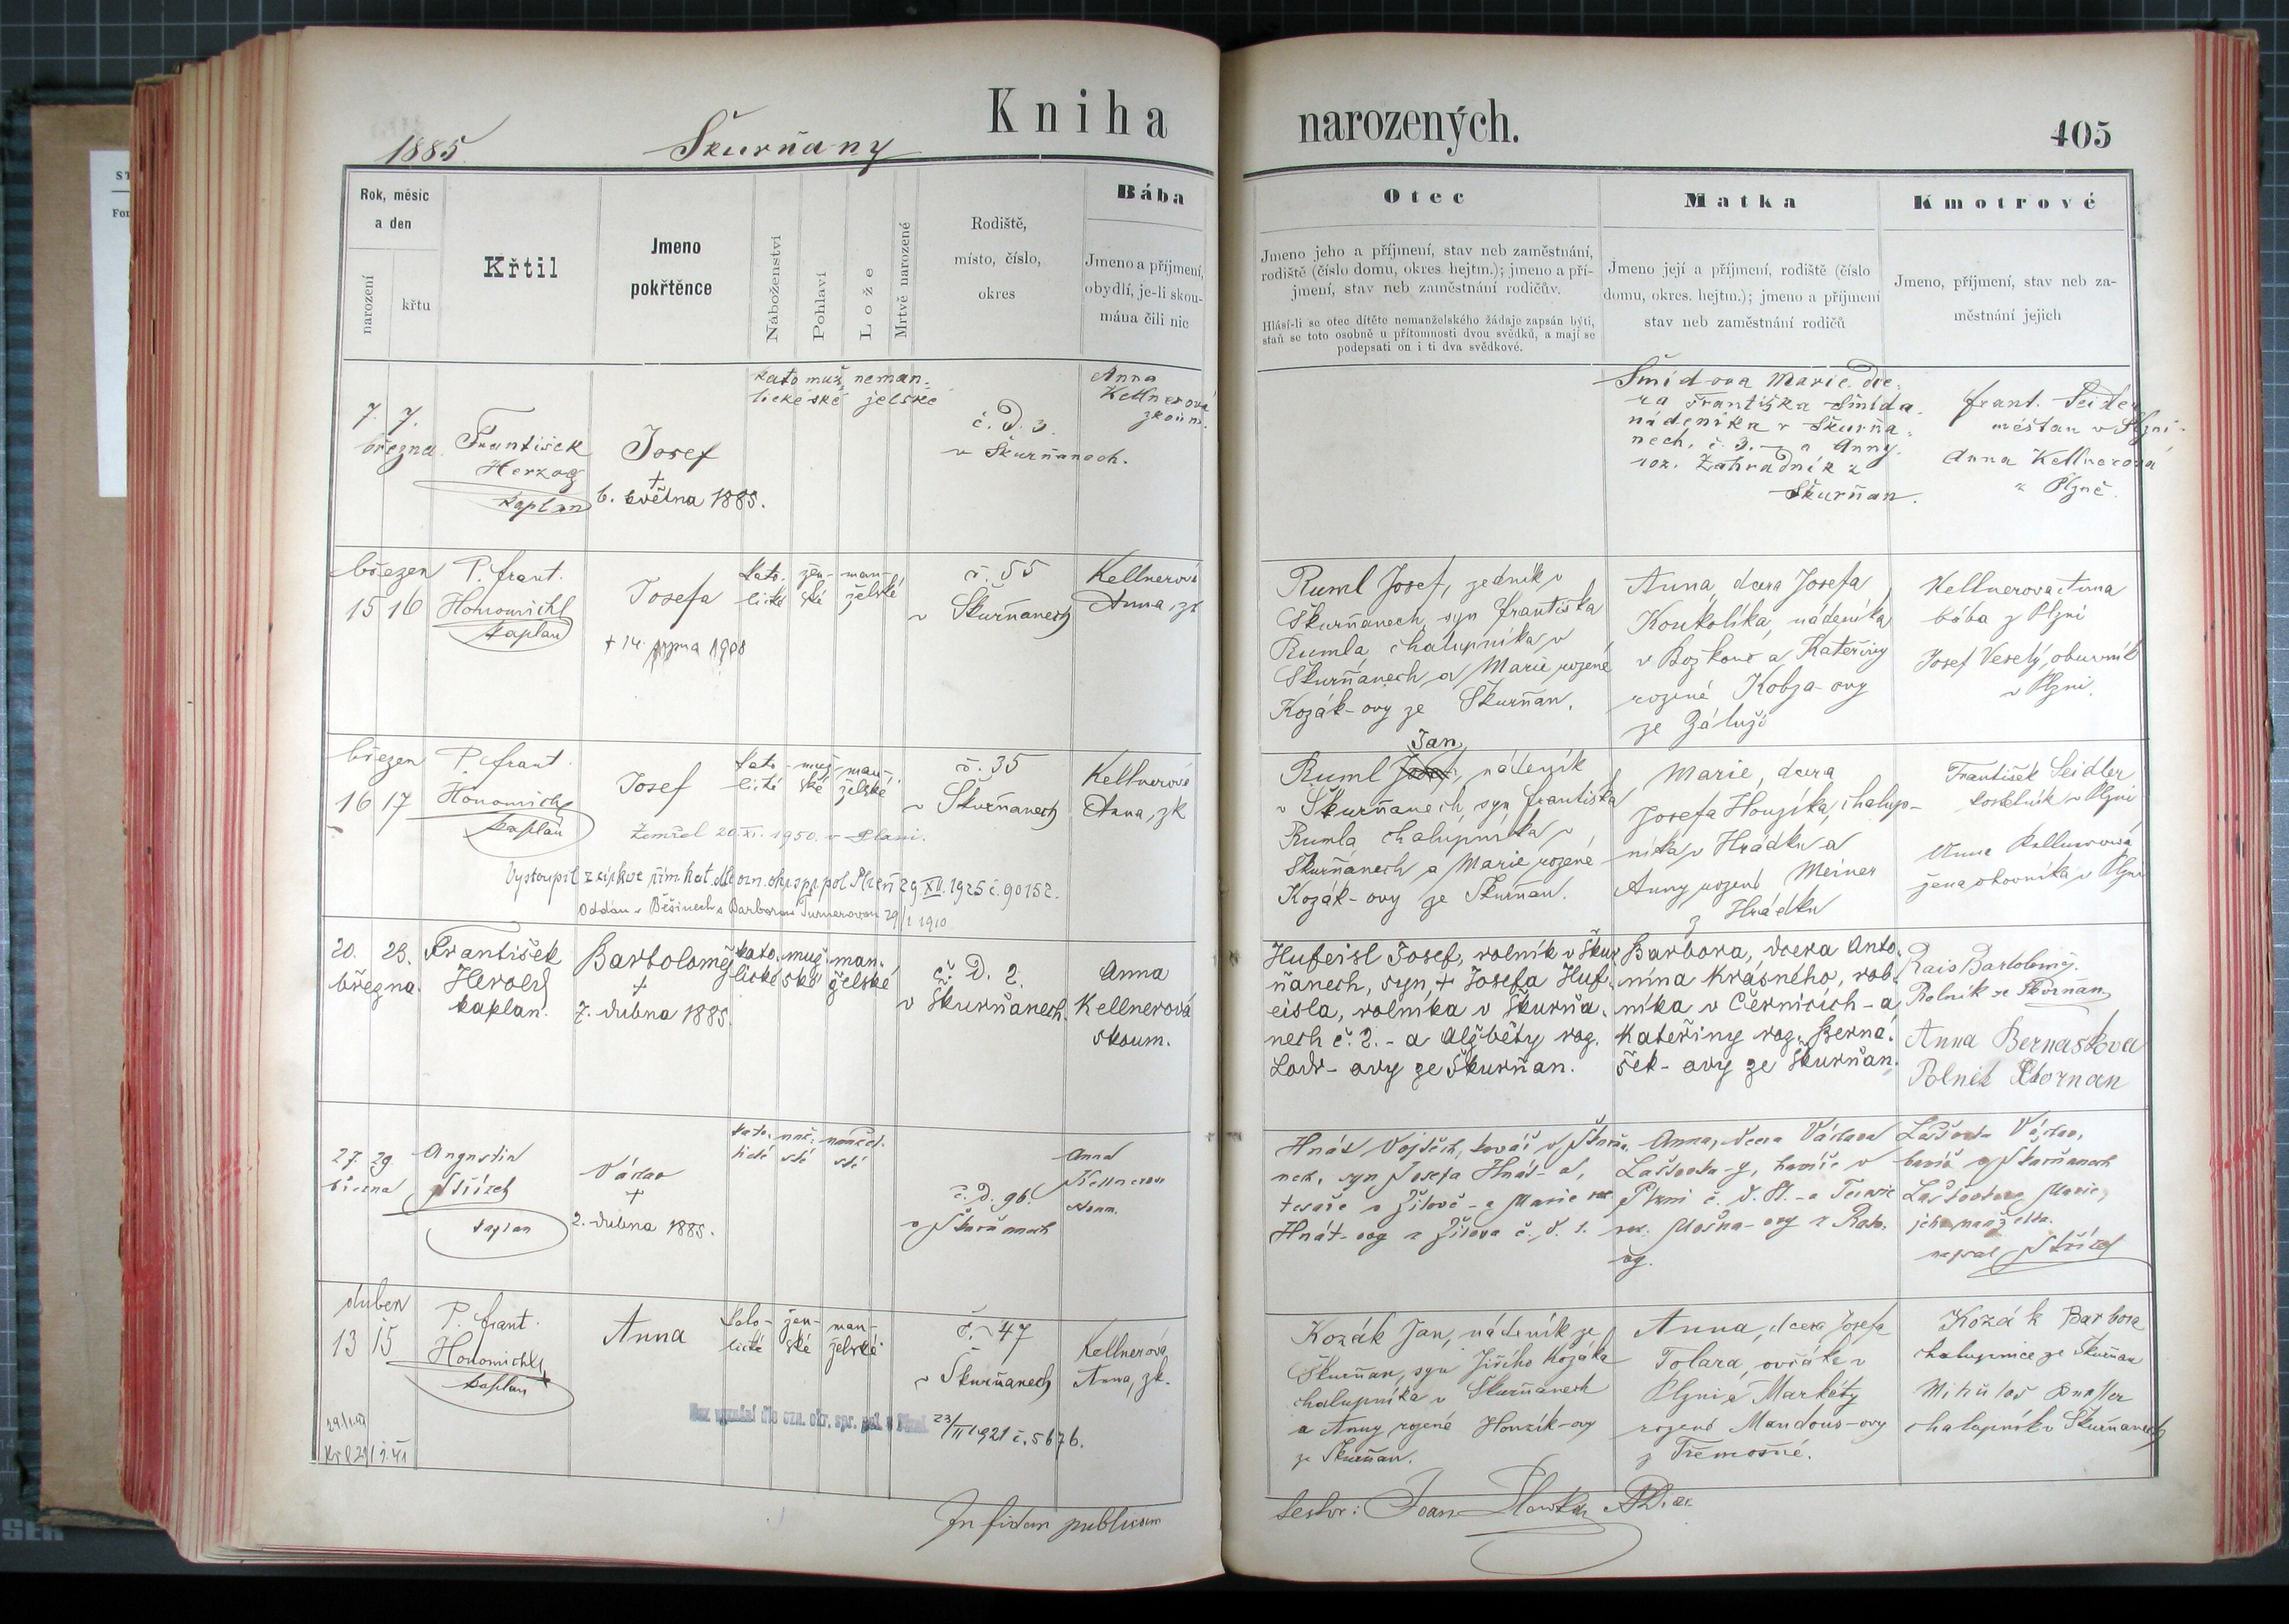 1885
Škurňany
Kniha
narozených.
405
Rok, měsíc
a den
narození
křtu
Křtil
Jmeno
pokřtěnce
Náboženství
Pohlaví
Lože
Mrtvě narozené
Rodiště,
místo, číslo,
okres
Bába
Jmeno a příjmení,
obydlí, je-li skou-
mána čili nic
Otec
Jmeno jeho a příjmení, stav neb zaměstnání,
rodiště (číslo domu, okres hejtm.); jmeno a pří-
jmení, stav neb zaměstnání rodičův.
Hlásí-li se otec dítěte nemanželského žádaje zapsán býti,
staň se toto osobně u přítomnosti dvou svědků, a mají se
podepsati on i ti dva svědkové.
Matka
Jmeno její a příjmení, rodiště (číslo
domu, okres. hejtm.); jmeno a příjmení
stav neb zaměstnání rodičů
Kmotrové
Jmeno, příjmení, stav neb za-
městnání jejich
7. 7.
března
František
Herzog
kaplan
Josef
+
6. května 1885.
kato muž neman-
lické ské jelské
č. D. 3.
v Škurňanech.
Anna
Kellnerová
zkoum.
Šmídova Marie dce-
ra Františka Šmída
nádeníka v Škurňa-
nech, č. 3. a Anny
roz. Zahradník z
Škurňan.
Frant. Seidler
měšťan v Plzni
Anna Kellnerová
z Plzně.
březen
15 16
P. Frant.
Honomichl
kaplan
Josefa
+ 14. srpna 1908
kato- žen- man-
lické ské želské
č. 55
v Škurňanech
Kellnerová
Anna, zk
Ruml Josef, zedník v
Škurňanech, syn Františka
Rumla chalupníka v
Škurňanech a Marie rozené
Kozák-ovy ze Škurňan.
Anna, dcera Josefa
Koukolíka, nádeníka
v Božkově a Kateřiny
rozené Kobza-ovy
ze Záluží
Kellnerova Anna
bába z Plzni
Josef Veselý, obuvník
v Plzni.
březen
16 17
P. Frant.
Honomichl
kaplan
Josef
kato- muž- man-
lické ské želské
č. 35
v Škurňanech
Kellnerová
Anna, zk
Zemřel 20. XI. 1950. v Plani.
Vystoupil z církve řím. kat. dle ozn. okr. spr. pol. Plzeň 29 XII. 1925 č. 90152.
Oddán v Běšinech s Barborou Turnerovou 29/1 1910
Jan,
Ruml Josef, nádeník
v Škurňanech, syn Františka
Rumla chalupníka v
Škurňanech a Marie rozené
Kozák-ovy ze Škurňan.
Marie, dcera
Josefa Houzíka, chalup-
níka v Hrádku a
Anny rozené Meiner
z Hrádku
František Seidler
kostelník v Plzni
Anna Kellnerová
žena obovníka v Plzni
20. 23.
března.
František
Herold
kaplan.
Bartoloměj
+
7. dubna 1885.
kato. muž. man.
lické ské želské
č. D. 2.
v Škurňanech.
Anna
Kellnerová
skoum.
Hufeisl Josef, rolník v Škur
ňanech, syn + Josefa Huf.
eisla, rolníka v Škurňa.
nech č. 2. - a Alžběty roz.
Lodr-ovy ze Škurňan.
Barbora, dcera Anto.
nína Krásného, rol.
níka v Černicích - a
Kateřiny roz. Berná.
šek - ovy ze Škurňan.
Rais Bartoloměj.
Rolník ze Škornan
Anna Bernaskova
Rolnik Skornan
27. 29.
března
Augustin
Střízek
kaplan
Václav
+
2. dubna 1885.
č. D. 96.
v Škurňanech
Anna
Kellnerova
Hnát Vojtěch, kovář v Škurňa.
nech, syn Josefa Hnát-a,
tesaře v Žilově - a Marie roz
Hnát-ovy z Žilova č. d. 1.
Anna, dcera Václava
duben
13 15
P. Frant.
Honomichl
kaplan
Anna
kato- žen- man-
lické ské želské
č. 47
v Škurňanech
Kellnerová
Anna, zk.
Bez vyznání dle ozn. okr. spr. pol. v Plzni
23/II 1921 č. 5676.
Kozák Jan, nádeník ze
Škurňan, syn Jiřího Kozáka
chalupníka v Škurňanech
a Anny rozené Houzík-ovy
ze Škurňan.
Anna, dcera Josefa
Tolara, ovčáka v
Plzni a Markéty
rozené Mandous-ovy
z Třemošné.
Kozák Barbora
chalupnice ze Škurňan
chalupník v Škurňanech
In fidem publicam